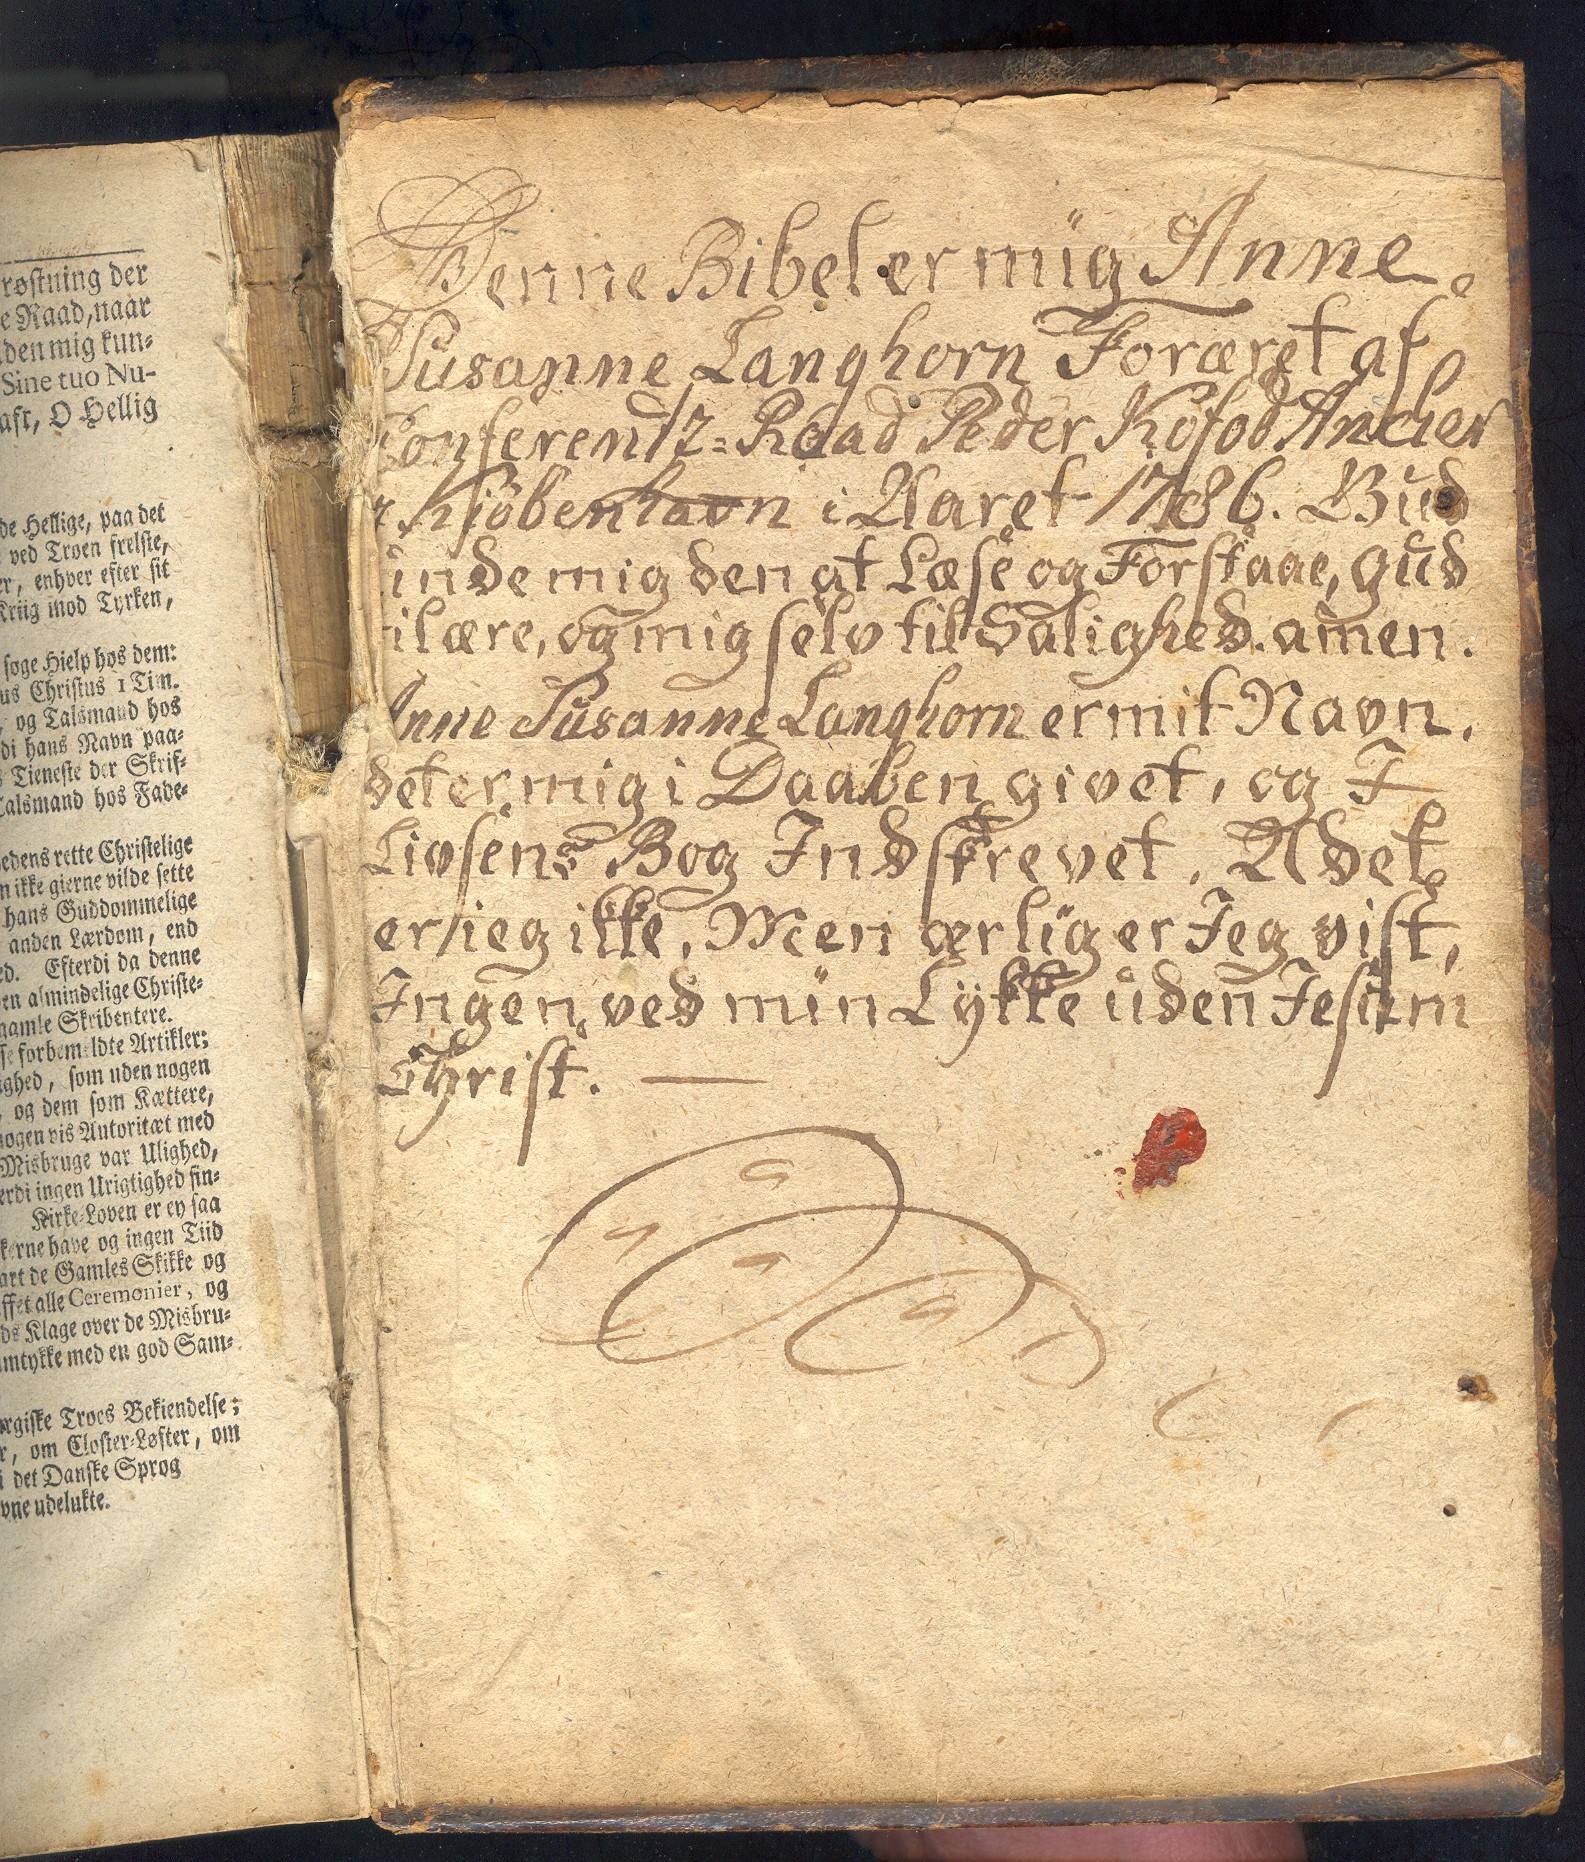 røstning der
e Raad, naar
den mig kun-
Sine tuo Nu-
aft, O Hellig
de Hellige, paa det
ved Troen frelste,
er, enhver efter sit
Kriig mod Tyrken,
søge Hielp hos dem:
us Christus 1 Tim.
og Talsmand hos
di hans Navn paa-
s Tieneste der Skrif-
Talsmand hos Fade-
edens rette Christelige
n ikke gierne vilde sette
hans Guddommelige
anden Lærdom, end
ed. Efterdi da denne
en almindelige Christe-
gamle Skribentere.
se forbemeldte Artikler;
ighed, som uden nogen
, og dem som Kættere,
nogen vis Autoritæt med
Misbruge var Ulighed,
erdi ingen Urigtighed fin-
Kirke-Loven er ey saa
kerne have og ingen Tiid
art de Gamles Skikke og
ffet alle Ceremonier, og
ds Klage over de Misbru-
mtykke med en god Sam-
orgiske Troes Bekiendelse;
r, om Closter-Løfter, om
i det Danske Sprog
vne udelukte.
Denne Bibel er müg Anne
Susanne Langhorn Foræret af
Conferentz-Raad Peder Kofod Ancher
Kjöbenhavn i Aaret 1786. Gud
inde mig den at Læse og Forstaae, gud
til ære, og mig selv til Salighed. amen.
Anne Susanne Langhorn er mit Navn.
det er mig i Daaben givet, og I
Livsens Bog Indskrevet. Adel
er ieg ikke, Men ærlüg er Jeg vist,
Ingen ved müin Lÿkke uden Jesum
Christ. —